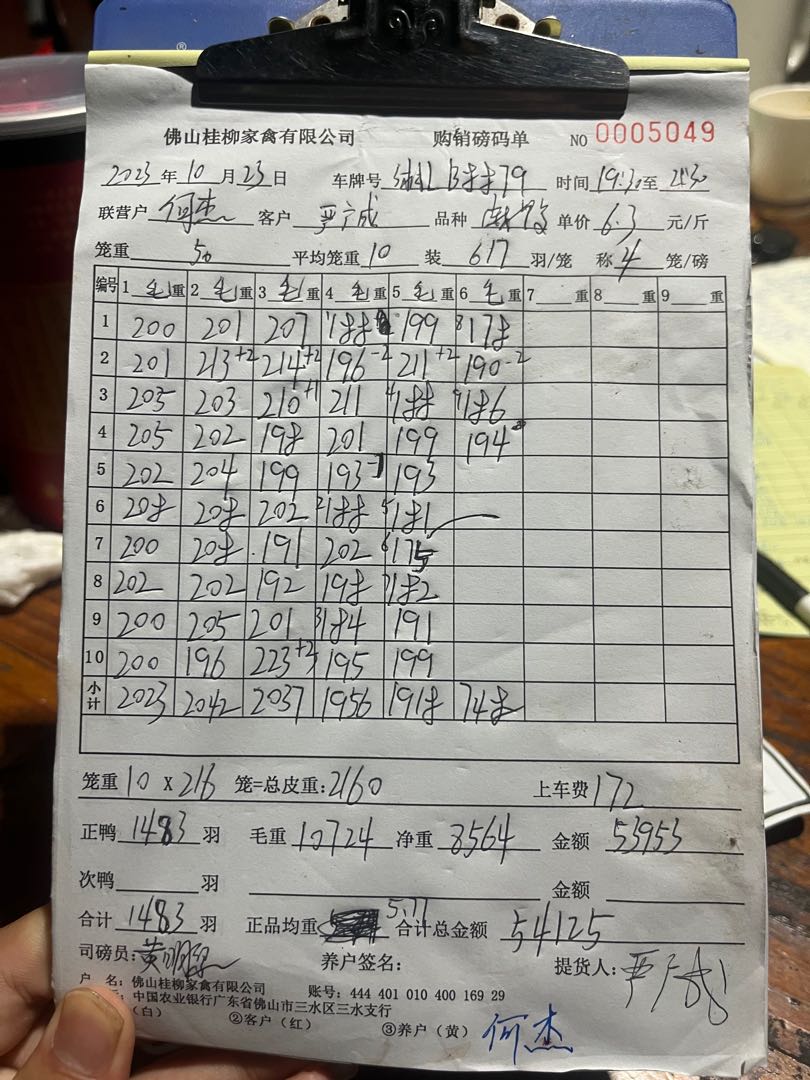 佛山桂柳家禽有限公司 购销磅码单 NO 0005049
2023年10月23日 车牌号 79 时间19:30至21:30
联营户 何杰 客户 严广成 品种 单价 6.3 元/斤
笼重 50 平均笼重 10 装 6/7 羽/笼 称 4 笼/磅
编号 1 毛重 2 毛重 3 毛重 4 毛重 5 毛重 6 毛重 7 重 8 重 9 重
1 200 201 207 188 199 178
2 201 213+2 214+2 196-2 211+2 190-2
3 205 203 210+1 211 188 186
4 205 202 198 201 199 194
5 202 204 199 193-1 193
6 208 208 202 188 181
7 200 208 191 202 175
8 202 202 192 198 182
9 200 205 201 184 191
10 200 196 223+2 195 199
小计 2023 2042 2037 1956 1918 748
笼重 10 X 216 笼=总皮重:2160 上车费 172
正鸭 1483 羽 毛重 10724 净重 8564 金额 53953
次鸭 羽 金额
合计 1483 羽 正品均重 5.77 合计总金额 54125
司磅员: 养户签名: 提货人:严广成
户 名:佛山桂柳家禽有限公司 账号:444 401 010 400 169 29
中国农业银行广东省佛山市三水区三水支行
(白) ②客户(红) ③养户(黄) 何杰